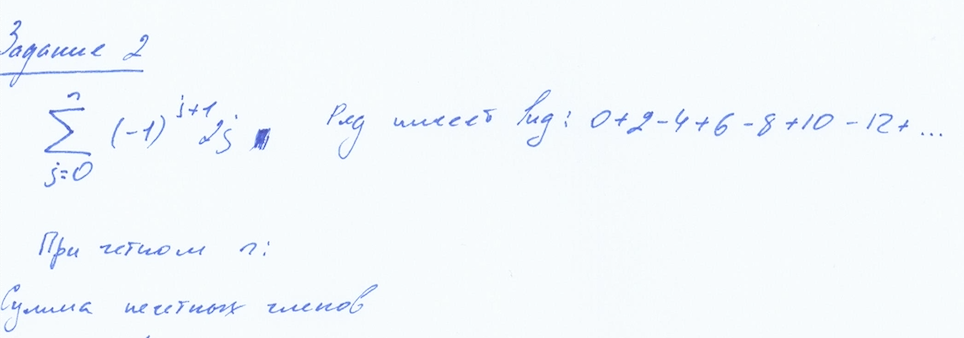 Задание 2
\sum_{j=0}^{n} (-1)^{j+1} 2j Ряд имеет вид: 0+2-4+6-8+10-12+...
При четном n:
Сумма нечетных членов